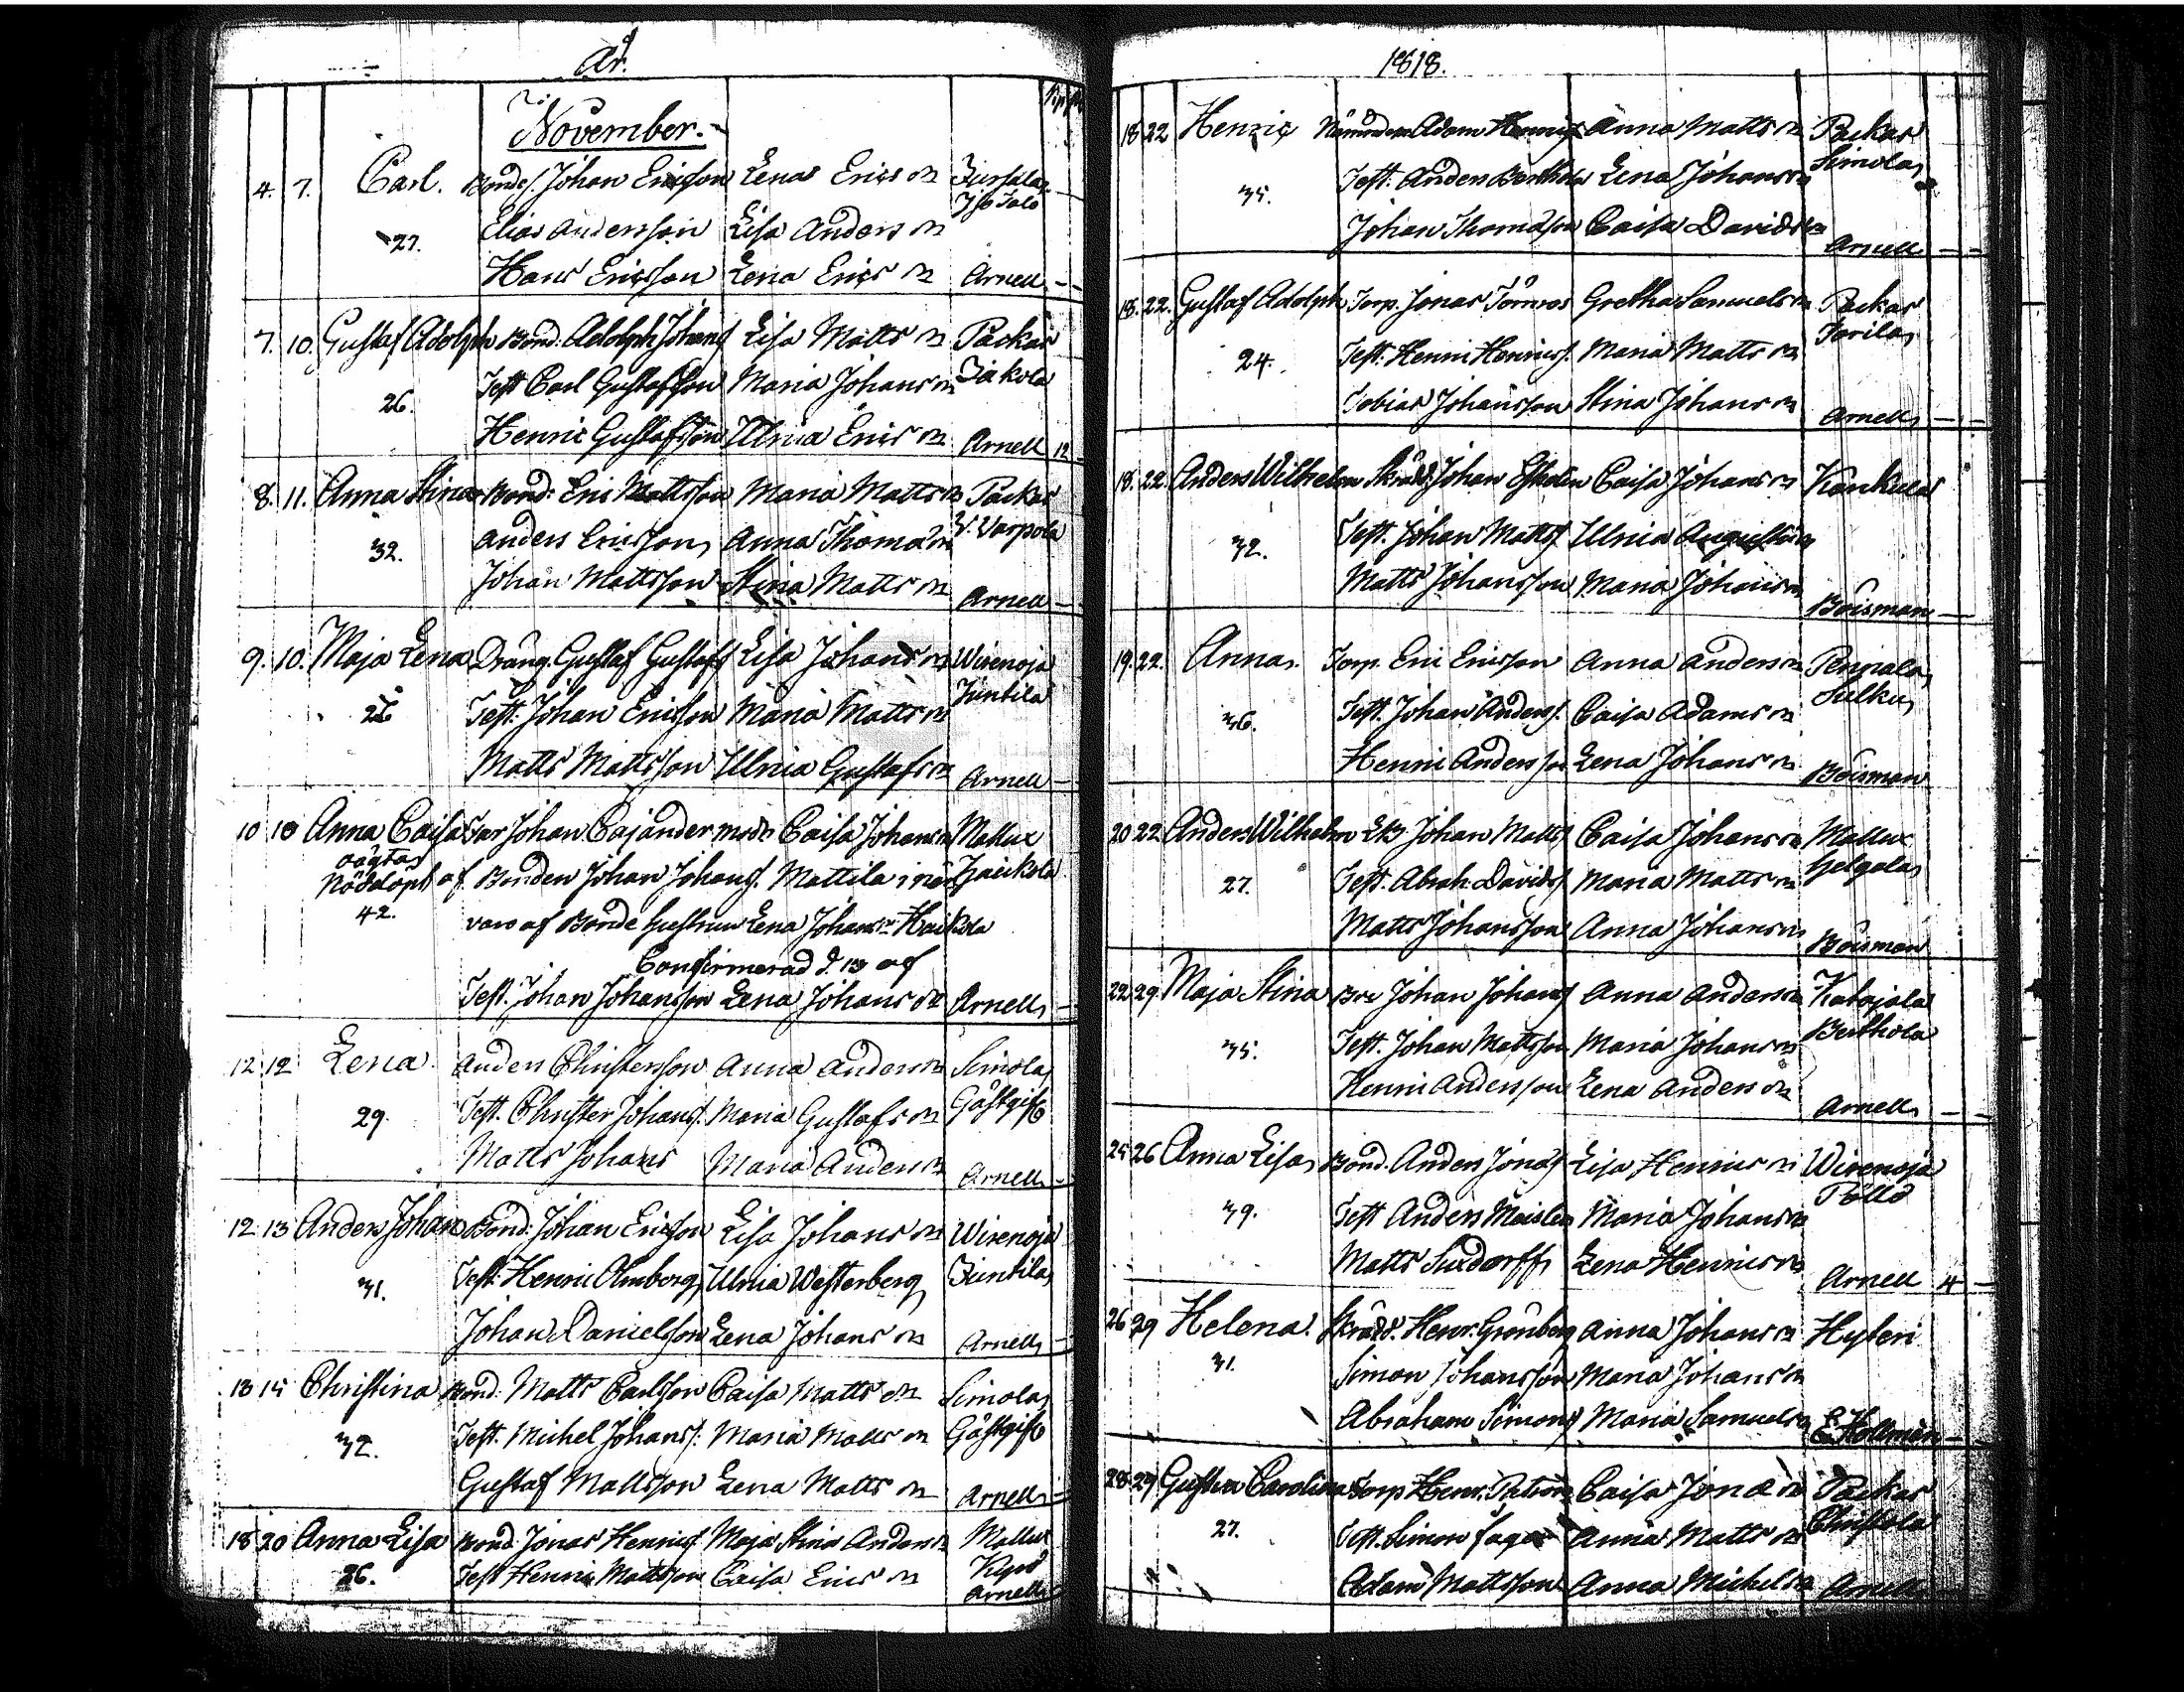 År.
November.
4. 7. Carl. Bondes. Johan Ericsson Lena Erics dr Junsala
Iso Talo
27. Elias Andersson Lisa Anders dr
Hans Ericsson Lena Erics dr Arnell
7. 10. Gustaf Adolph Bond: Adolph Johans Lisa Matts dr Packar
Jakola
26. Test Carl Gustafsson Maria Johans dr
Henric Gustafsson Ulrica Erics dr Arnell 12
8. 11. Anna Stina Bond: Eric Mattsson Maria Matts dr Packar
V. Varpola
32. Anders Ericsson Anna Thomæ dr
Johan Mattsson Stina Matts dr Arnell
9. 10. Maja Lena Dräng. Gustaf Gustafs Lisa Johans dr Wirenoja
Juntila
26 Test: Johan Ericsson Maria Matts dr
Matts Mattsson Ulrica Gustafs dr Arnell
10 10 Anna Caisa Johan Cajander modr Caisa Johans dr Mallux
oägta
Nöddöpt af Bonden Johan Johans. Mattila i när
42. varo af Bonde hustrun Lena Johans dr Haikola
Confirmerad d. 13 af
Test. Johan Johansson Lena Johans dr Arnell
12 12 Lena. Anders Christersson Anna Anders dr Simola
Gästgifv
29. Test. Christer Johans: Maria Gustafs dr
Matts Johans Maria Anders dr Arnell
12 13 Anders Johan Bond: Johan Ericsson Lisa Johans dr Wirenoja
31. Test: Henric Olmberg Ulrica Westerberg Juntila
Johan Danielsson Lena Johans dr Arnell
13 15 Christina Bond: Matts Carlsson Caisa Matts dr Simola
32. Test. Michel Johans: Maria Matts dr Gästgifv
Gustaf Mattsson Lena Matts dr Arnell
18 20 Anna Lisa Bond. Jonas Henrics Maja Stina Anders dr Mallux
26. Test Henric Mattsson Caisa Erics dr Kypö
Arnell
1818.
18 22 Henric Nämndem Adam Henrics Anna Matts dr Packar
Simola
35. Test: Anders Berthola Lena Johans dr
Johan Thomasson Caisa Davids dr Arnell
18. 22. Gustaf Adolph Torp. Jonas Törnros Gretha Samuels dr Packar
Torila
24. Test: Henric Henrics. Maria Matts dr
Tobias Johansson Stina Johans dr Arnell
18. 22 Anders Wilhelm Skrädd: Johan Ekholm Caisa Johans dr Kankula
32. Test. Johan Matts Ulrica Augustin
Matts Johansson Maria Johans dr Boisman
19. 22. Anna. Torp. Eric Ericsson Anna Anders dr Penjala
Sulku
36. Test. Johan Anders. Caisa Adams dr
Henric Andersson Lena Johans dr Boisman
20 22 Anders Wilhelm Johan Matts Caisa Johans dr Mallux
27. Test. Abrah. Davids Maria Matts dr Helgola
Matts Johansson Anna Johans dr Boisman
22 29 Maja Stina Johan Johans Anna Anders dr Katajala
Berthola
35. Test. Johan Mattsson Maria Johans dr
Henric Andersson Lena Anders dr Arnell
25 26 Anna Lisa Bond. Anders Jonas Lisa Henrics dr Wirenoja
Pällö
39. Test Anders Maisten Maria Johans dr
Matts Sundorff Lena Henrics dr Arnell 4
26 29 Helena. Skrädd. Henr. Grönberg Anna Johans dr Hyteri
31. Simon Johansson Maria Johans dr
Abraham Simons Maria Samuels dr C Hollmén
28 29 Gustava Carolina Torp Henr. Caisa Jonæ dr Packar
27. Test. Simon Fager Anna Matts dr Christola
Adam Mattsson Anna Michels dr Arnell